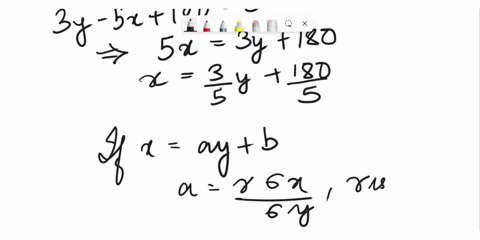 3y - 5x + 180
⇒ 5x = 3y + 180
x = 3/5 y + 180/5
If x = ay + b
a = r 6x / 6y ,